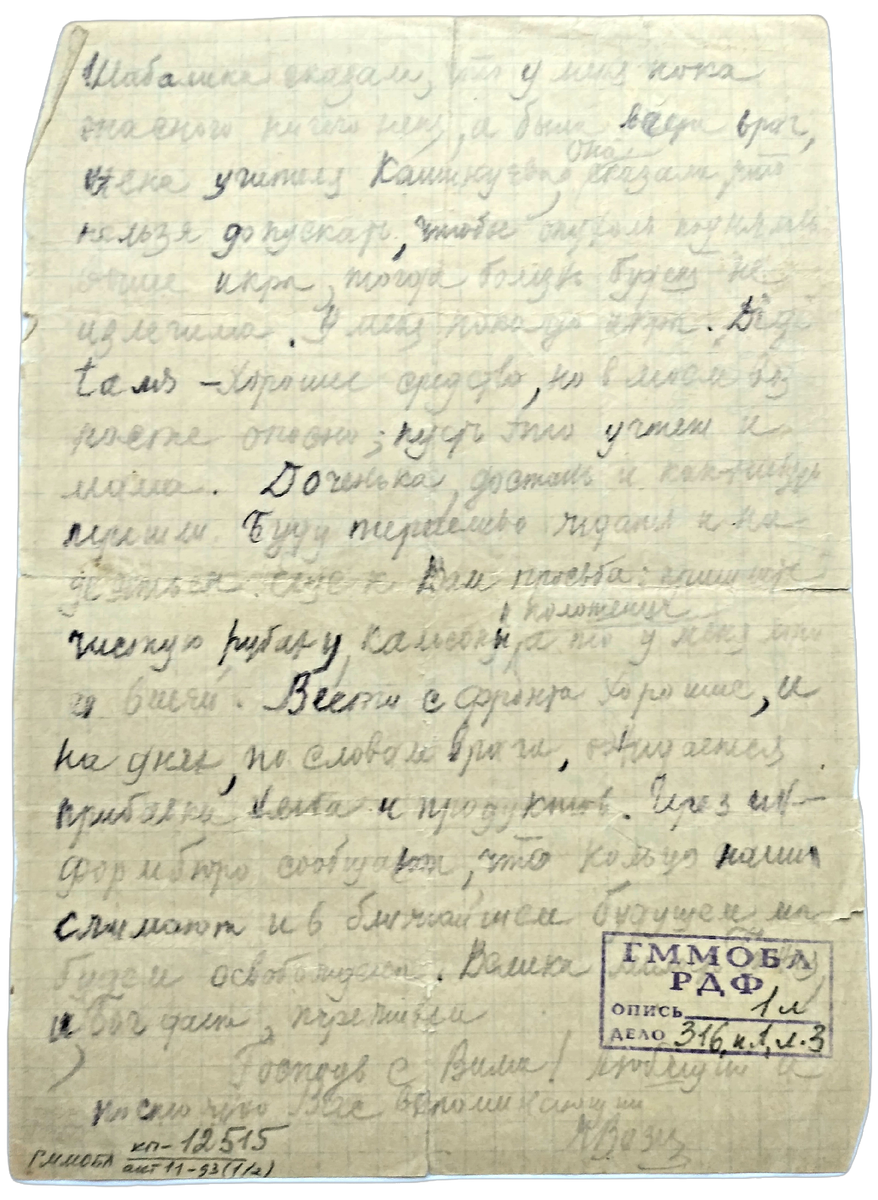 Шабалина сказала, что у меня пока
опасного ничего нет, а была вчера врач,
жена учителя она сказала, что
нельзя допускать, чтобы опухоль поднялась
выше икры, тогда болезнь будет не
излечима. У меня пока до икры. Digi
talis – хорошее средство, но в моем воз
расте опасно; пусть это учтет и
мама. Доченька, достань и как-нибудь
перешли. Буду терпеливо ждать и на-
деяться. Еще к Вам просьба: пришлите
положение
чистую рубаху, кальсоны, а то у меня
вшей. Вести с фронта хорошие, и
на днях, по словам врача, ожидается
прибавка хлеба и продуктов. Через ин-
формбюро сообщают, что кольцо наши
сжимают и в ближайшем будущем мы
будем освобождены. Велика
и Бог даст, переживем
Господь с Вами! Любящий и
постоянно Вас вспоминающий
ГММОБЛ
РДФ
ОПИСЬ 1 л
ДЕЛО 316, п.1, л.3
ГММОБЛ КП-12515
акт 11-93 (1/2)